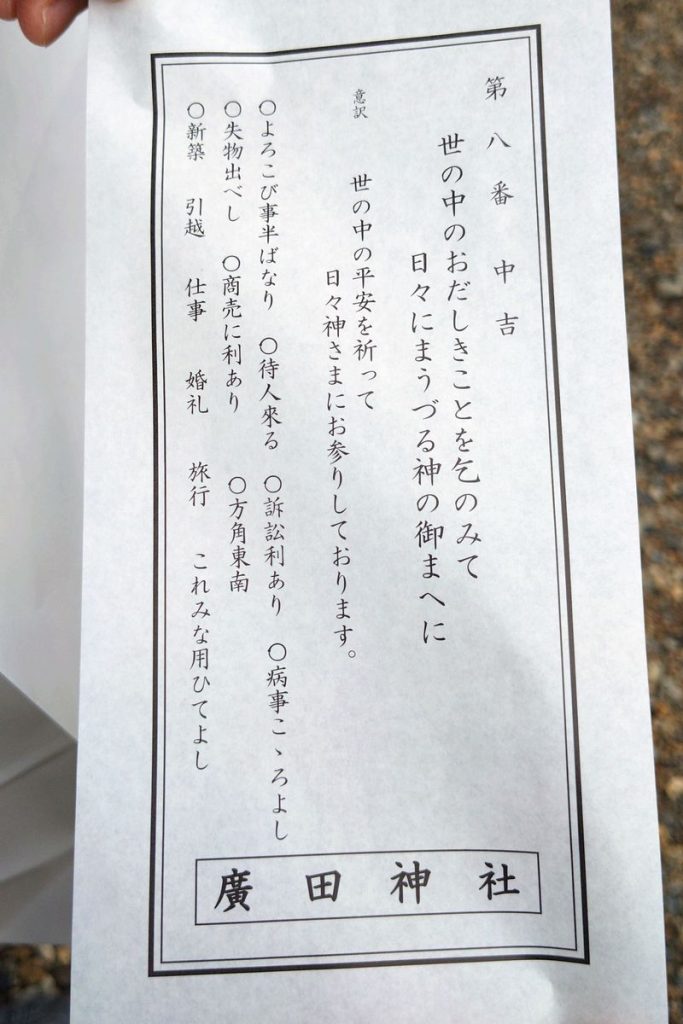 第八番 中吉
世の中のおだしきことを乞のみて
日々にまうづる神の御まへに
意訳 世の中の平安を祈って
日々神さまにお参りしております。
○よろこび事半ばなり ○待人來る ○訴訟利あり ○病事こゝろよし
○失物出べし ○商売に利あり ○方角東南
○新築 引越 仕事 婚礼 旅行 これみな用ひてよし
廣田神社